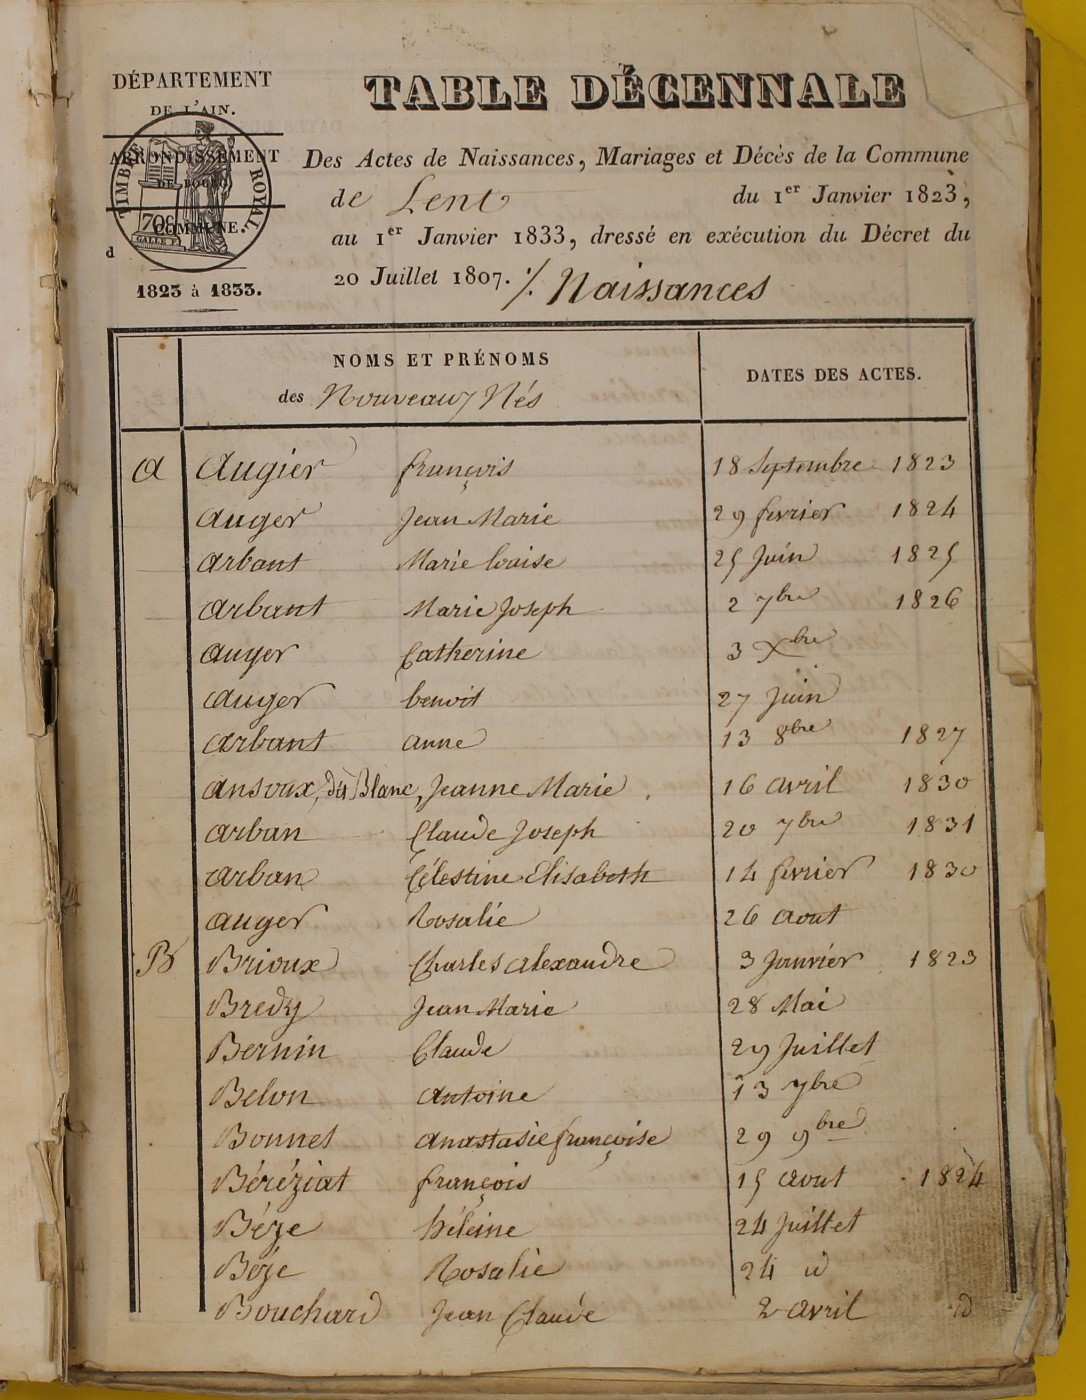 DÉPARTEMENT
DE L'AIN.
ARRONDISSEMENT
DE BOURG
COMMUNE.
d
1823 à 1833.
TIMBRE ROYAL
TABLE DÉCENNALE
Des Actes de Naissances, Mariages et Décès de la Commune
de Lent du 1er Janvier 1823,
au 1er Janvier 1833, dressé en exécution du Décret du
20 Juillet 1807. ./. Naissances
NOMS ET PRÉNOMS
des Nouveaux Nés
DATES DES ACTES.
A Augier françois 18 Septembre 1823
Auger Jean Marie 29 fevrier 1824
Arbant Marie Louise 25 Juin 1825
Arbant Marie Joseph 2 7bre 1826
Auger Catherine 3 Xbre
Auger benoit 27 Juin
Arbant Anne 13 8bre 1827
Ansoux, dit Blanc, Jeanne Marie 16 Avril 1830
Arban Claude Joseph 20 7bre 1831
Arban Célestine Elisabeth 14 fevrier 1830
Auger Rosalie 26 Aout
B Brioux Charles Alexandre 3 Janvier 1823
Bredy Jean Marie 28 Mai
Bernin Claude 29 Juillet
Belon Antoine 13 7bre
Bonnet Anastasie françoise 29 9bre
Béréziat françois 15 Aout 1824
Bèze héleine 24 Juillet
Bèze Rosalie 24 id
Bouchard Jean Claude 2 Avril id